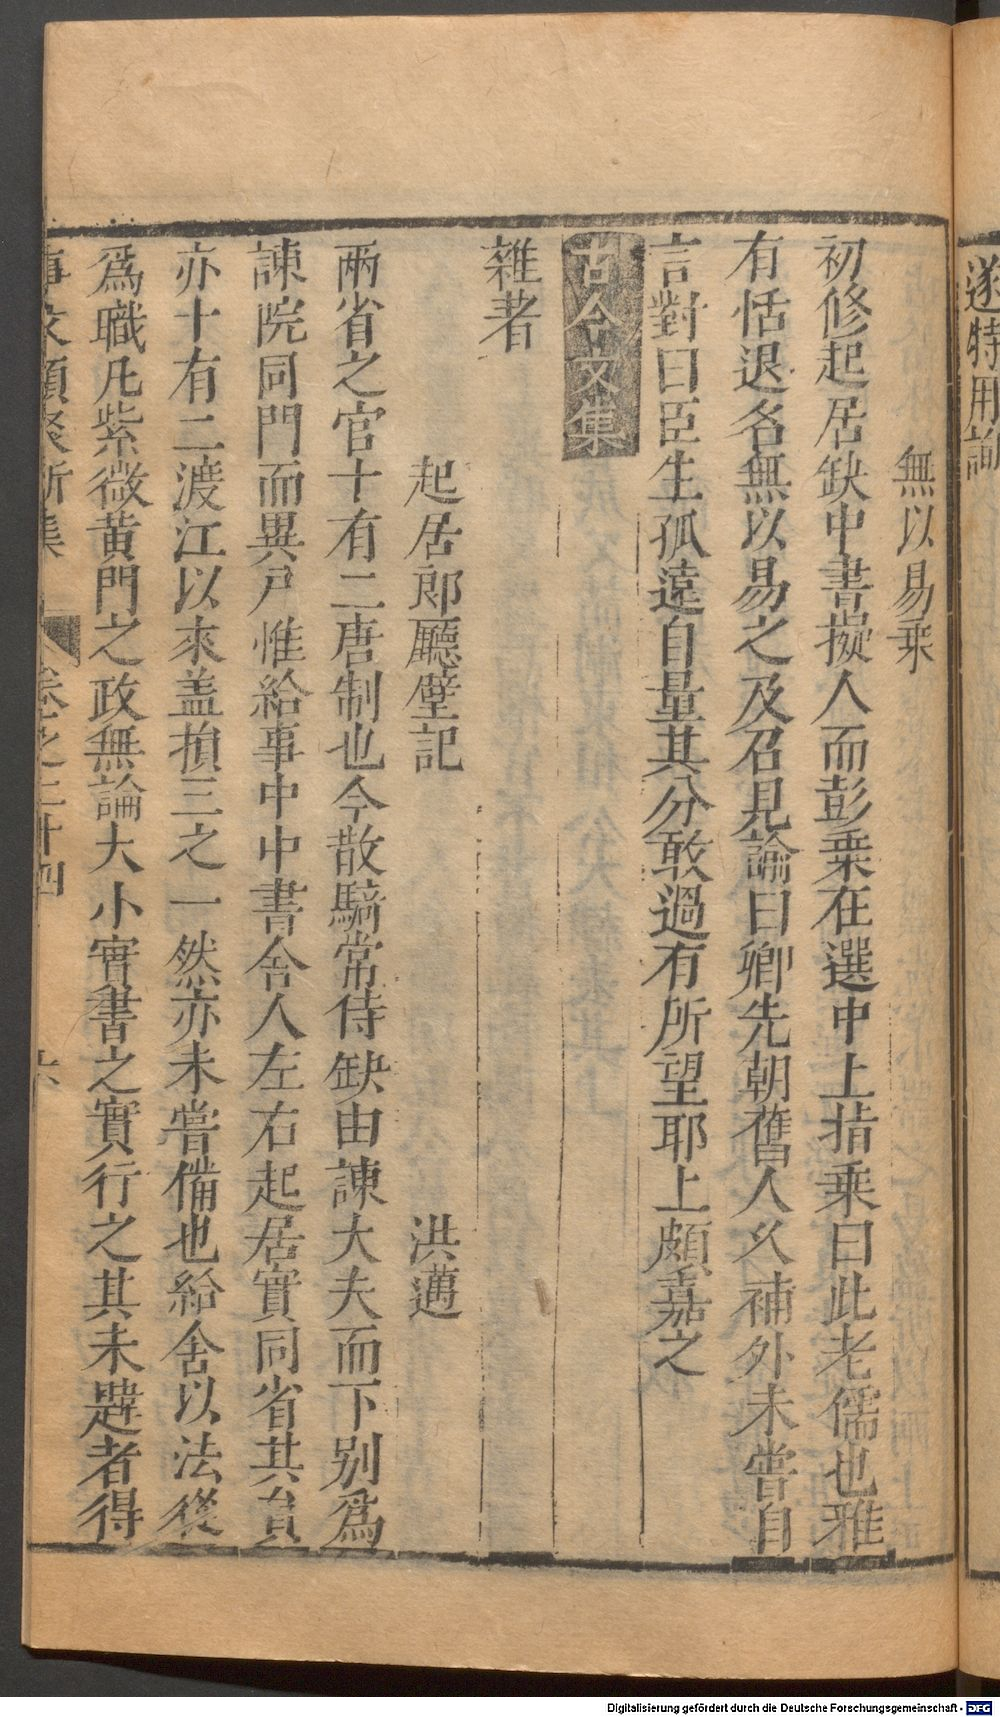 遂特用諭
無以易乘
初修起居缺中書擬人而彭乘在選中上指乘曰此老儒也雅
有恬退名無以易之及召見諭曰卿先朝舊人久補外未嘗自
言對曰臣生孤遠自量其分敢過有所望耶上頗嘉之
古今文集
雜著
起居郎廳壁記 洪邁
兩省之官十有二唐制也今散騎常侍缺由諫大夫而下別爲
諫院同門而異戶惟給事中中書舍人左右起居實同省其貟
亦十有二渡江以來盖損三之一然亦未嘗備也給舍以法從
爲職凡紫微黃門之政無論大小實書之實行之其未韙者得
事文類聚新集 卷之二十四 六
Digitalisierung gefördert durch die Deutsche Forschungsgemeinschaft - DFG